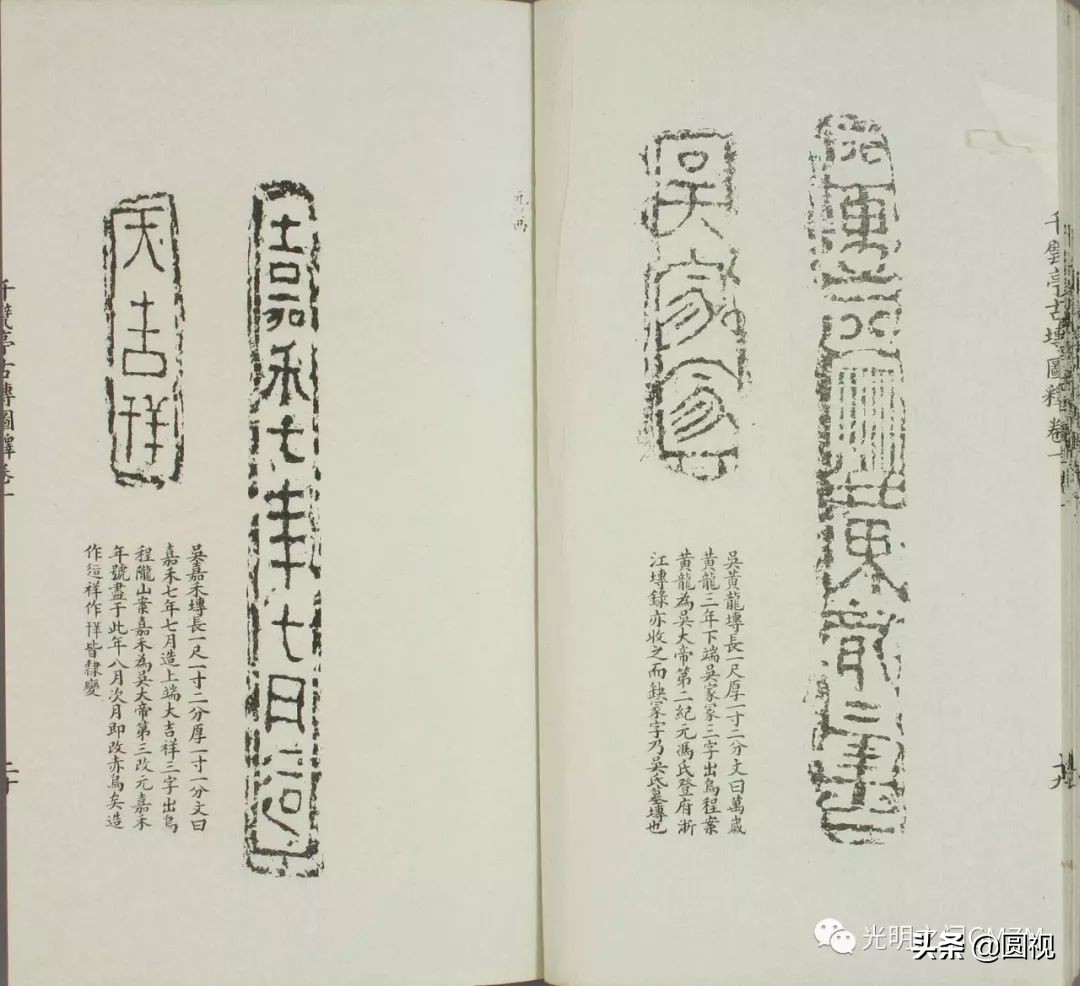 千甓亭古塼圖釋卷一
十九
黃龍三年
吳家冢
吳黃龍塼長一尺厚一寸二分文曰萬歲
黃龍三年下端吳家冢三字出烏程案
黃龍為吳大帝第二紀元馮氏登府浙
江塼錄亦收之而缺冢字乃吳氏墓塼也
嘉禾七年七月造
大吉祥
吳嘉禾塼長一尺一寸二分厚一寸一分文曰
嘉禾七年七月造上端大吉祥三字出烏
程隴山案嘉禾為吳大帝第三改元嘉禾
年號盡于此年八月次月即改赤烏矣造
作祥作皆隸變
千甓亭古塼圖釋卷一
二十
光明之门GMZM
头条 @圆视